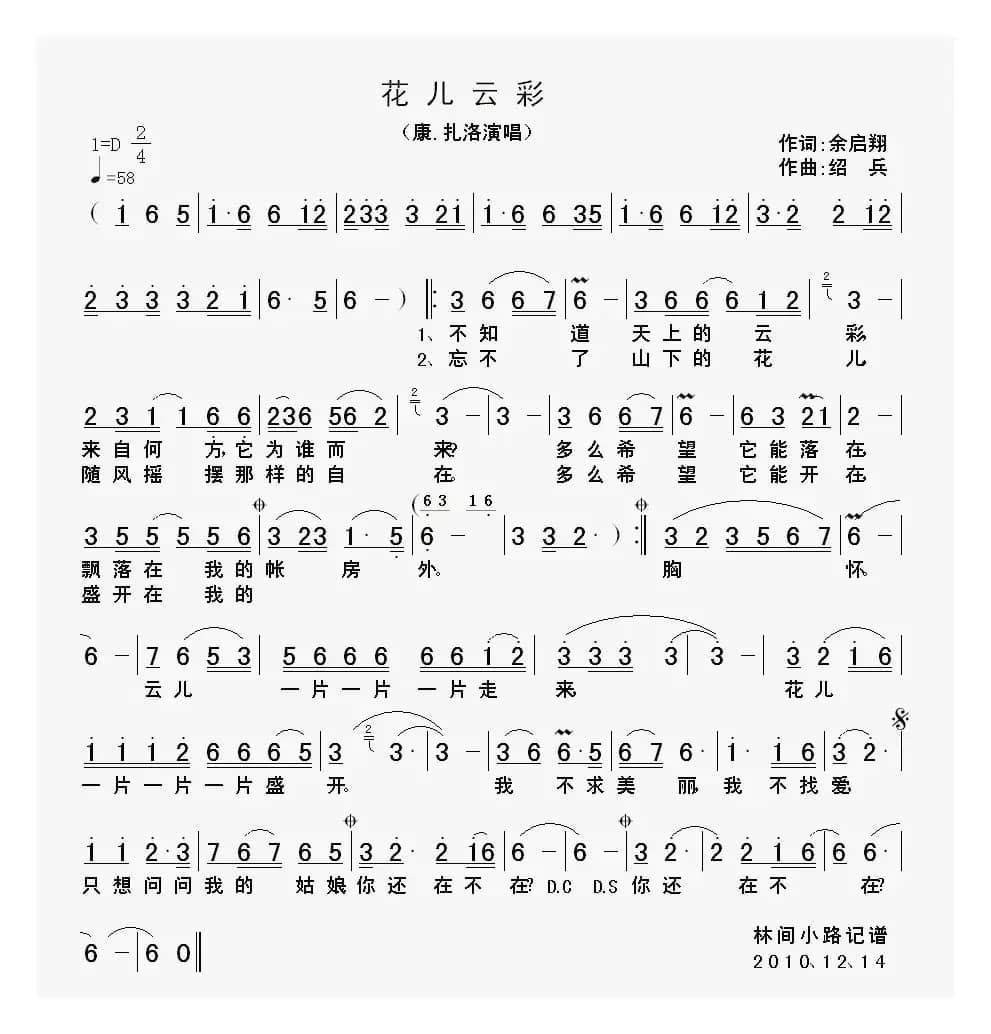 花儿云彩
（康.扎洛演唱）
1=D 2/4
♩=58
作词:余启翔
作曲:绍 兵
( 1 6 5 | 1·6 6 12 | 233 3 21 | 1·6 6 35 | 1·6 6 12 | 3·2 2 12 |
2 3 3 3 2 1 | 6· 5 | 6 - ) |: 3 6 6 7 | 6 - | 3 6 6 6 1 2 | 2 3 - |
1、不知 道 天上的 云 彩,
2、忘不 了 山下的 花 儿,
2 3 1 1 6 6 | 236 56 2 | 2 3 - | 3 - | 3 6 6 7 | 6 - | 6 3 21 | 2 - |
来自何 方,它为谁而 来? 多么希 望 它能落在,
随风摇 摆那样的自 在。 多么希 望 它能开在,
(6 3 1 6
3 5 5 5 5 6 | 3 23 1· 5 | 6 - | 3 3 2· ) :| 3 2 3 5 6 7 | 6 - |
飘落在 我的帐 房 外。 胸 怀。
盛开在 我的
6 - | 7 6 5 3 | 5 6 6 6 6 6 1 2 | 3 3 3 3 | 3 - | 3 2 1 6 |
云儿 一片一片 一片走 来, 花儿
1 1 1 2 6 6 6 5 | 3 2 3· | 3 - | 3 6 6·5 | 6 7 6· | 1· 1 6 | 3 2· |
一片一片一片盛 开。 我 不求美 丽,我 不找爱,
1 1 2·3 | 7 6 7 6 5 | 3 2· 2 16 | 6 - | 6 - | 3 2· | 2 2 1 6 | 6 6· |
只想问问我的 姑娘你还 在不 在? D.C D.S 你还 在不 在?
6 - | 6 0 ‖
林间小路记谱
2010、12、14